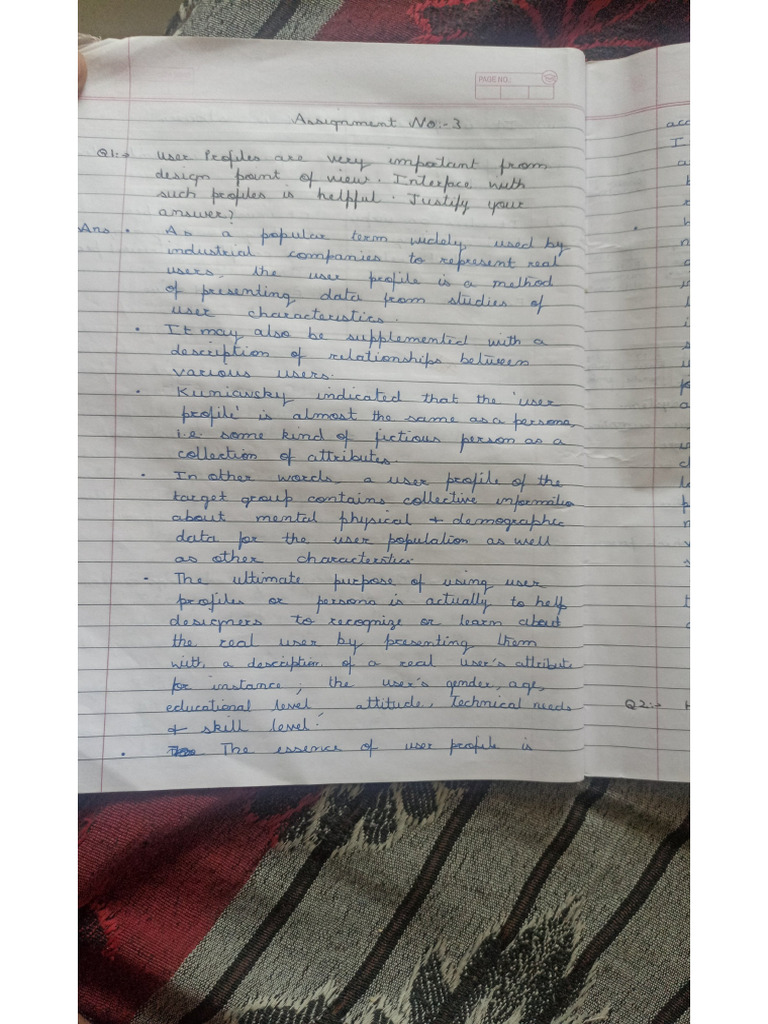 PAGE NO.:
Assignment No:-3
Q1:→ User Profiles are very impotant from
design point of view. Interface with
such profiles is helpful. Justify your
answer?
Ans • As a popular term widely used by
industrial companies to represent real
users, the user profile is a method
of presenting data from studies of
user characteristics.
• It may also be supplemented with a
description of relationships between
various users.
• Kuniavsky indicated that the 'user
profile' is almost the same as a persona,
i.e. some kind of fictious person as a
collection of attributes.
• In other words, a user profile of the
target group contains collective information
about mental physical & demographic
data for the user population as well
as other characteristics.
• The ultimate purpose of using user
profiles or persona is actually to help
designers to recognize or learn about
the real user by presenting them
with a description of a real user's attribute
for instance; the user's gender, age,
educational level attitude, Technical needs
& skill level.
• The essence of user profile is
Q2:→